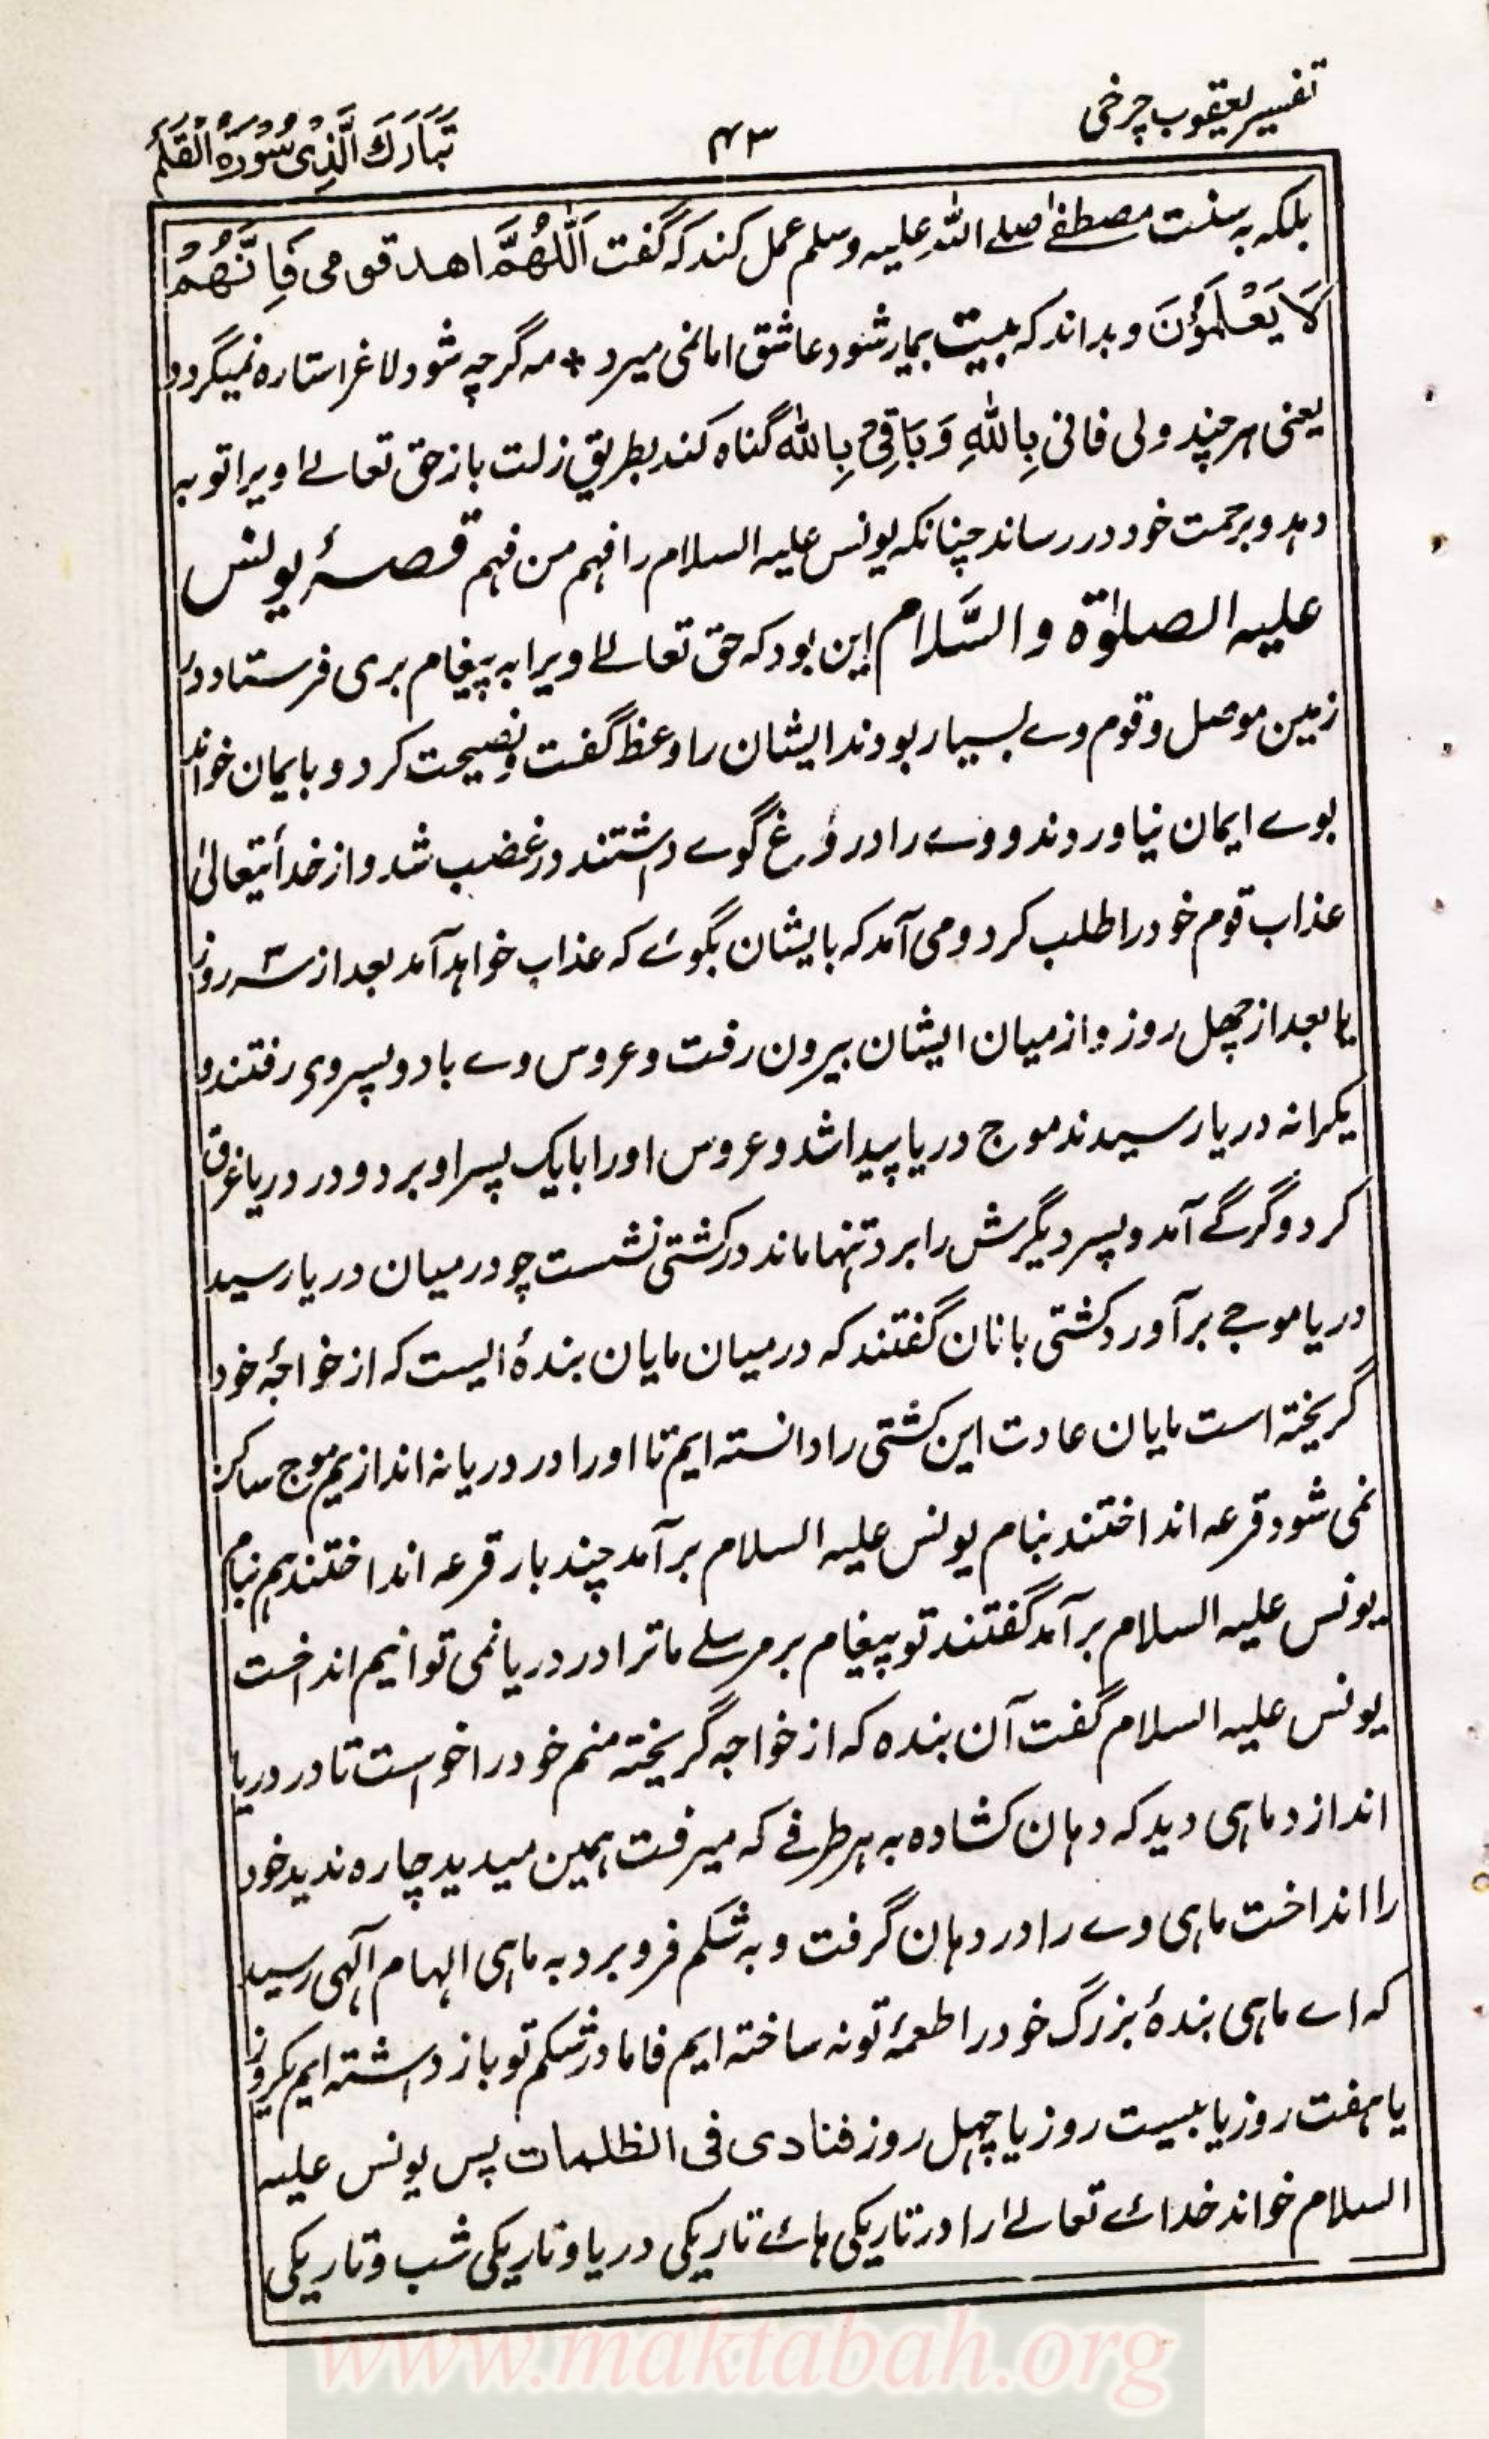 تفسیر یعقوب چرخی
۴۳
تَبَارَكَ الَّذِیْ سُوْرَۃُ الْقَلَمِ
بلکه به سنت مصطفےٰ صلے اللہ علیہ وسلم عمل کند کہ گفت اَللّٰهُمَّ اهد قومی فَاِنَّهُمْ
لَا يَعْلَمُوْنَ و بداند کہ بیت بیمار شود عاشق اما نمی میرد * مہ گرچہ شود لاغر استارہ نمیگردد
یعنی ہر چند ولی فانی بِاللّٰهِ وَبَاقِیْ بِاللّٰه گناہ کند بطریق زلت باز حق تعالےٰ او یرا توبہ
دہد و برحمت خود در رساند چنانکہ یونس علیہ السلام را فہم من فہم قصۂ یونس
علیہ الصلوٰۃ والسَّلام این بود کہ حق تعالےٰ ویرا بہ پیغام بری فرستاد در
زمین موصل و قوم وے بسیار بودند ایشان را وعظ گفت و نصیحت کرد و بایمان خواند
بوے ایمان نیاوردند و وے را دروغ گوے داشتند در غضب شد و از خدائتعالیٰ
عذاب قوم خود را طلب کرد ومی آمد کہ بایشان بگوئے کہ عذاب خواہد آمد بعد از سہ روز
یا بعد از چہل روز و از میان ایشان بیرون رفت و عروس وے با دو پسر وی رفتند و
بکرانہ دریا رسیدند موج دریا پیدا شد و عروس او را با یک پسر او برد و در دریا غرق
کرد و گرگے آمد و پسر دیگرش را برد تنہا ماند در کشتی نشست چو درمیان دریا رسید
دریا موجے برآورد کشتی بانان گفتند کہ درمیان مایان بندۂ الیست کہ از خواجۂ خود
گریختہ است مایان عادت این کشتی را دانستہ ایم تا او را در دریا نہ اندازیم موج ساکن
نمی شود قرعہ انداختند بنام یونس علیہ السلام برآمد چند بار قرعہ انداختند ہم بنام
یونس علیہ السلام برآمد گفتند تو پیغام بر مرسلے ما ترا در دریا نمی توانیم انداخت
یونس علیہ السلام گفت آن بندہ کہ از خواجہ گریختہ منم خود را خواست تا در دریا
اندازد ماہی دید کہ دہان کشادہ بہ ہر طرفے کہ میرفت ہمین میدید چارہ ندید خود
را انداخت ماہی وے را در دہان گرفت و بہ شکم فرو برد بہ ماہی الہام آلٰہی رسید
کہ اے ماہی بندۂ بزرگ خود را طعمۂ تو نہ ساختہ ایم فاما در شکم تو باز داشتہ ایم یکروز
یا ہفت روز یا بیست روز یا چہل روز فنادی فی الظلمات پس یونس علیہ
السلام خواند خدائے تعالےٰ را در تاریکی ہائے تاریکی دریا و تاریکی شب و تاریکی
www.maktabah.org